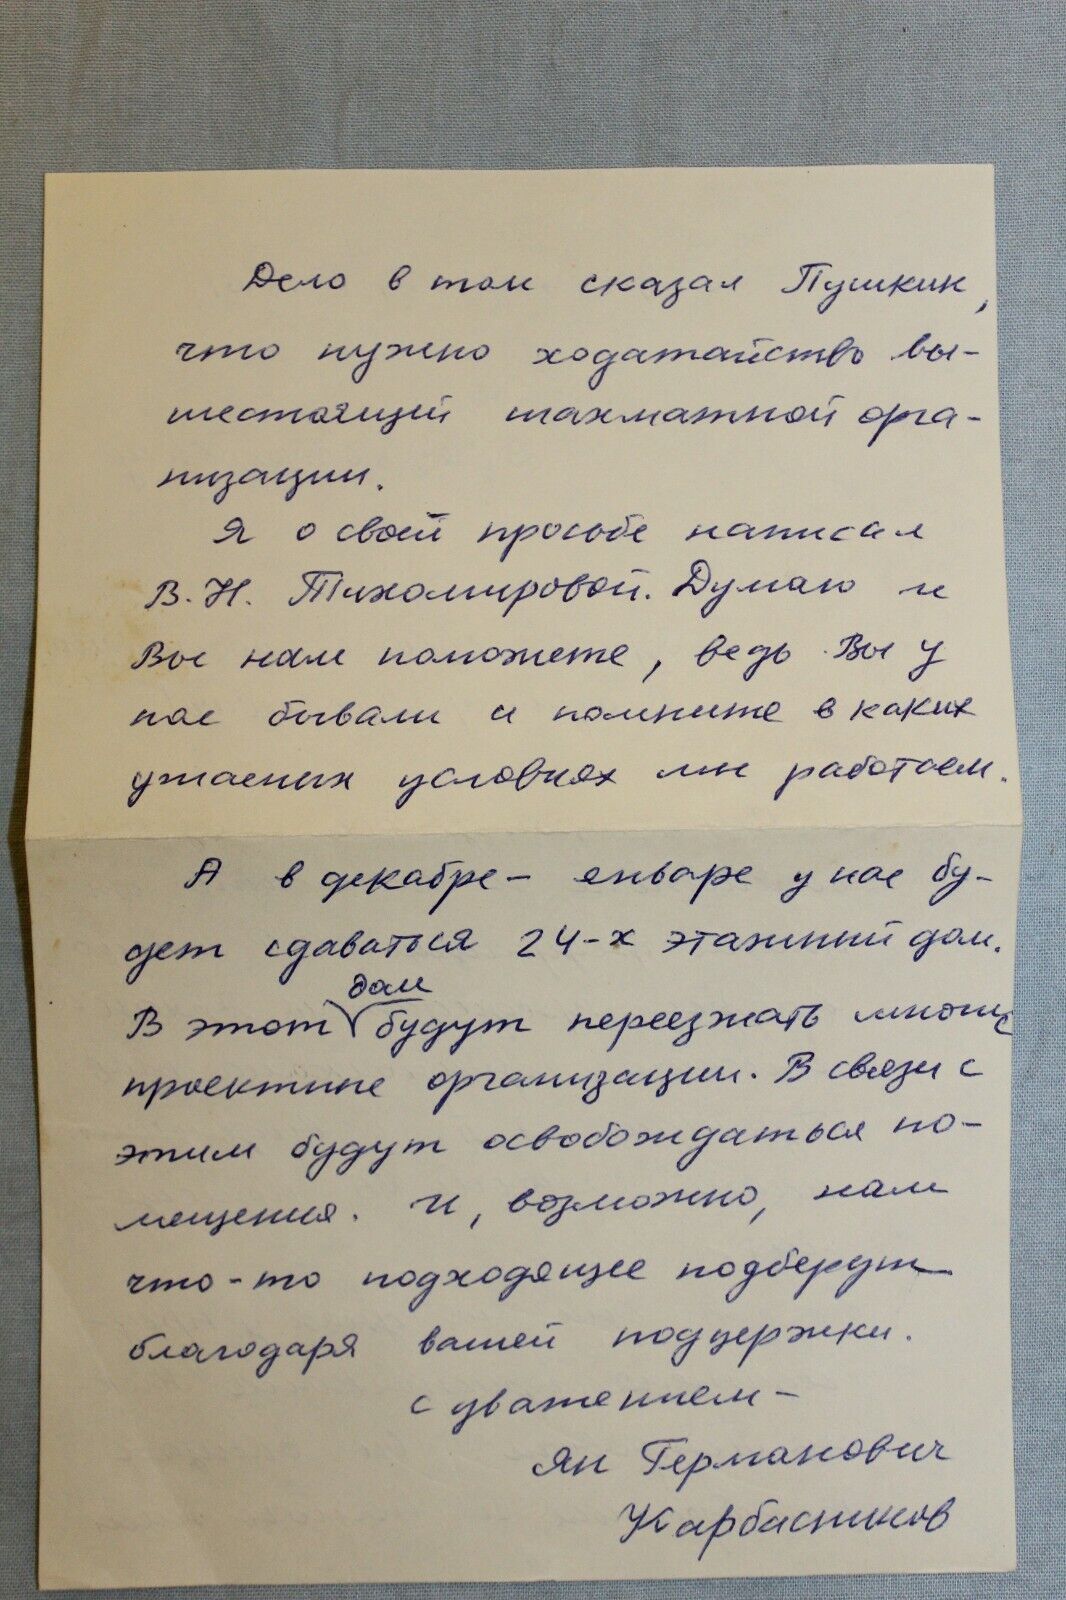 Дело в том сказал Пушкин,
что нужно ходатайство вы-
шестоящей шахматной орга-
низации.
Я о своей просьбе написал
В.Н. Тихомировой. Думаю и
Вы нам поможете, ведь Вы у
нас бывали и помните в каких
ужасных условиях мы работаем.
А в декабре - январе у нас бу-
дет сдаваться 24-х этажный дом.
дом
В этот будут переезжать многие
проектные организации. В связи с
этим будут освобождаться по-
мещения. И, возможно, нам
что-то подходящее подберут
благодаря вашей поддержки.
С уважением -
Ян Германович
Карбасников